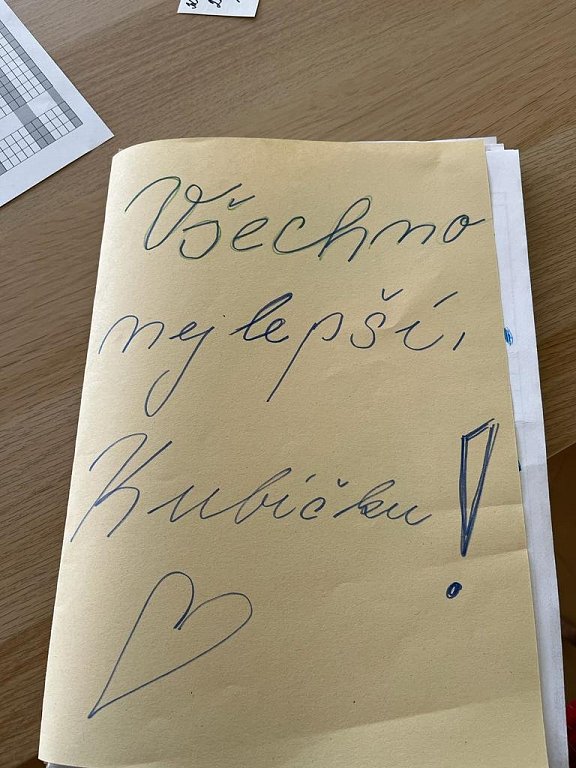 Všechno
nejlepší,
Kubíčku!